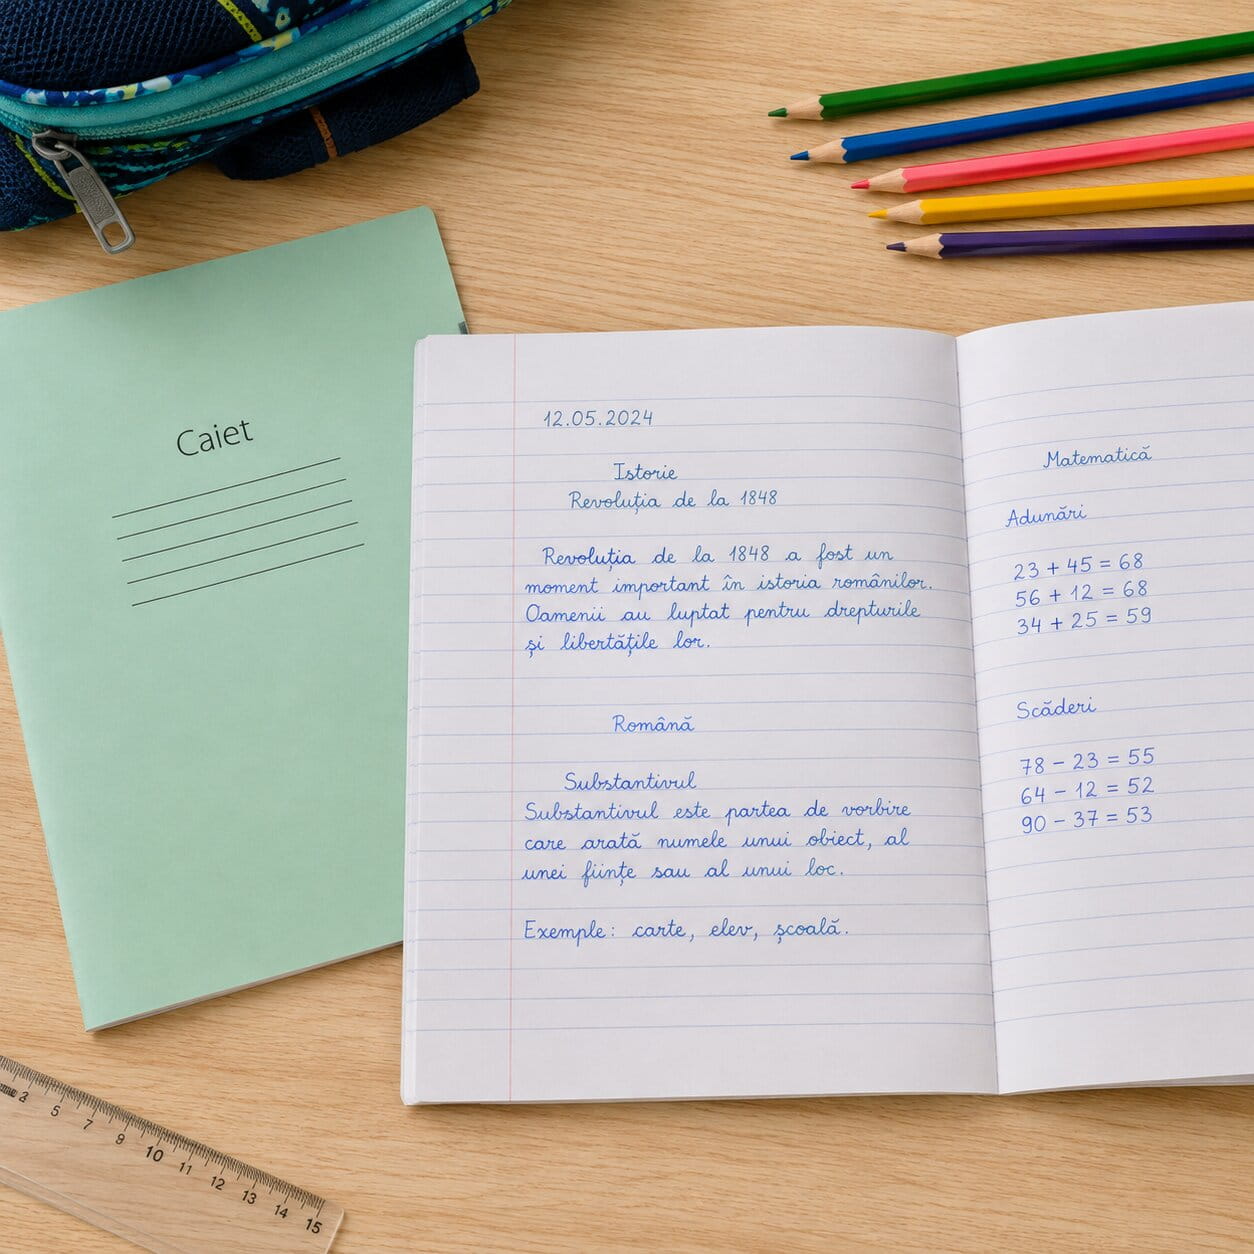 Caiet
12.05.2024
Istorie
Revoluția de la 1848
Revoluția de la 1848 a fost un
moment important în istoria românilor.
Oamenii au luptat pentru drepturile
și libertățile lor.
Română
Substantivul
Substantivul este partea de vorbire
care arată numele unui obiect, al
unei ființe sau al unui loc.
Exemple: carte, elev, școală.
Matematică
Adunări
23 + 45 = 68
56 + 12 = 68
34 + 25 = 59
Scăderi
78 - 23 = 55
64 - 12 = 52
90 - 37 = 53
5 7 9 10 11 12 13 14 15